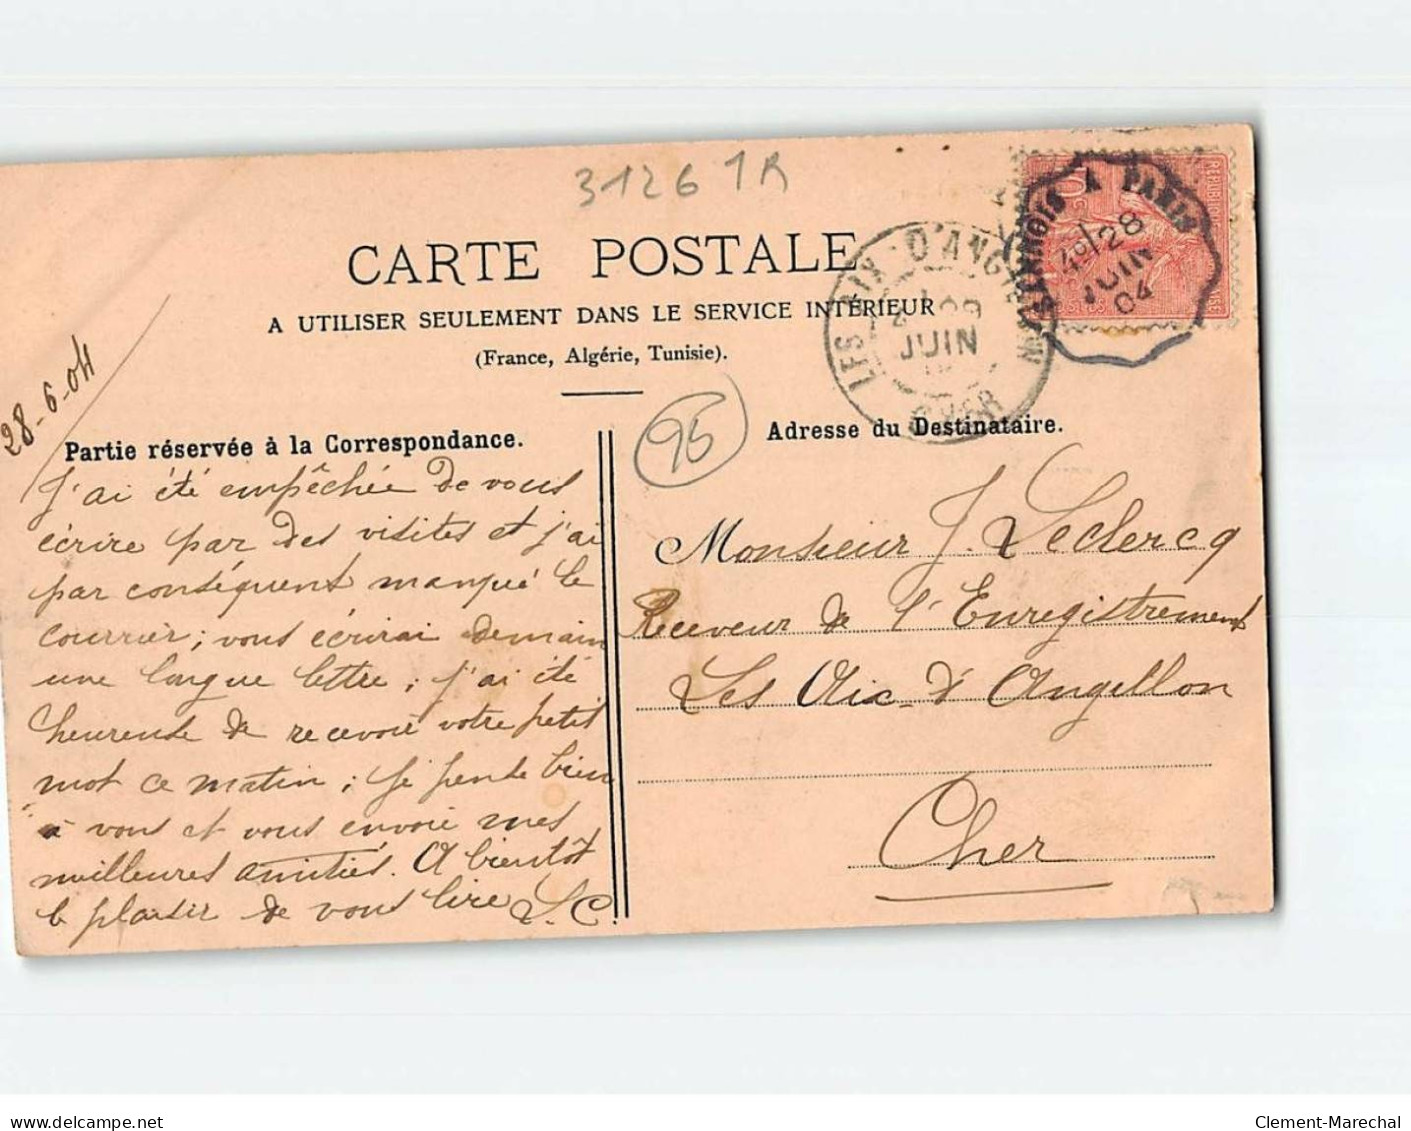 31261R
CARTE POSTALE
A UTILISER SEULEMENT DANS LE SERVICE INTÉRIEUR
(France, Algérie, Tunisie).
SERMOIS A PARIS
28
JUIN
04
LES AIX D'ANGILLON
JUIN
CHER
28-6-04
95
Partie réservée à la Correspondance.
J'ai été empêchée de vous
écrire par des visites et j'ai
par conséquent manqué le
courrier; vous écrirai demain
une longue lettre; j'ai été
heureuse de recevoir votre petit
mot ce matin; je pense bien
à vous et vous envoie mes
meilleures amitiés. A bientôt
le plaisir de vous lire S.C.
Adresse du Destinataire.
Monsieur J. Leclercq
Receveur de l'Enregistrement
Les Aix-d'Angillon
Cher
delcampe.net
Clement-Marechal